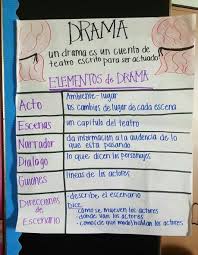 DRAMA
un drama es un cuento de
teatro escrito para ser actuado
ELEMENTOS de DRAMA
Ambiente- lugar
Acto
los cambios de lugar de cada escena
Escenas
un capítulo del teatro
Narrador
da información a la audencia de lo
que esta pasando
Dialogo
lo que dicen los personajes
Guiones
lineas de los actores
Direcciones
de
Escenario
- describe el escenario
Dice
- como se mueven los actores
- donde van los actores
- como es que hablan los actores